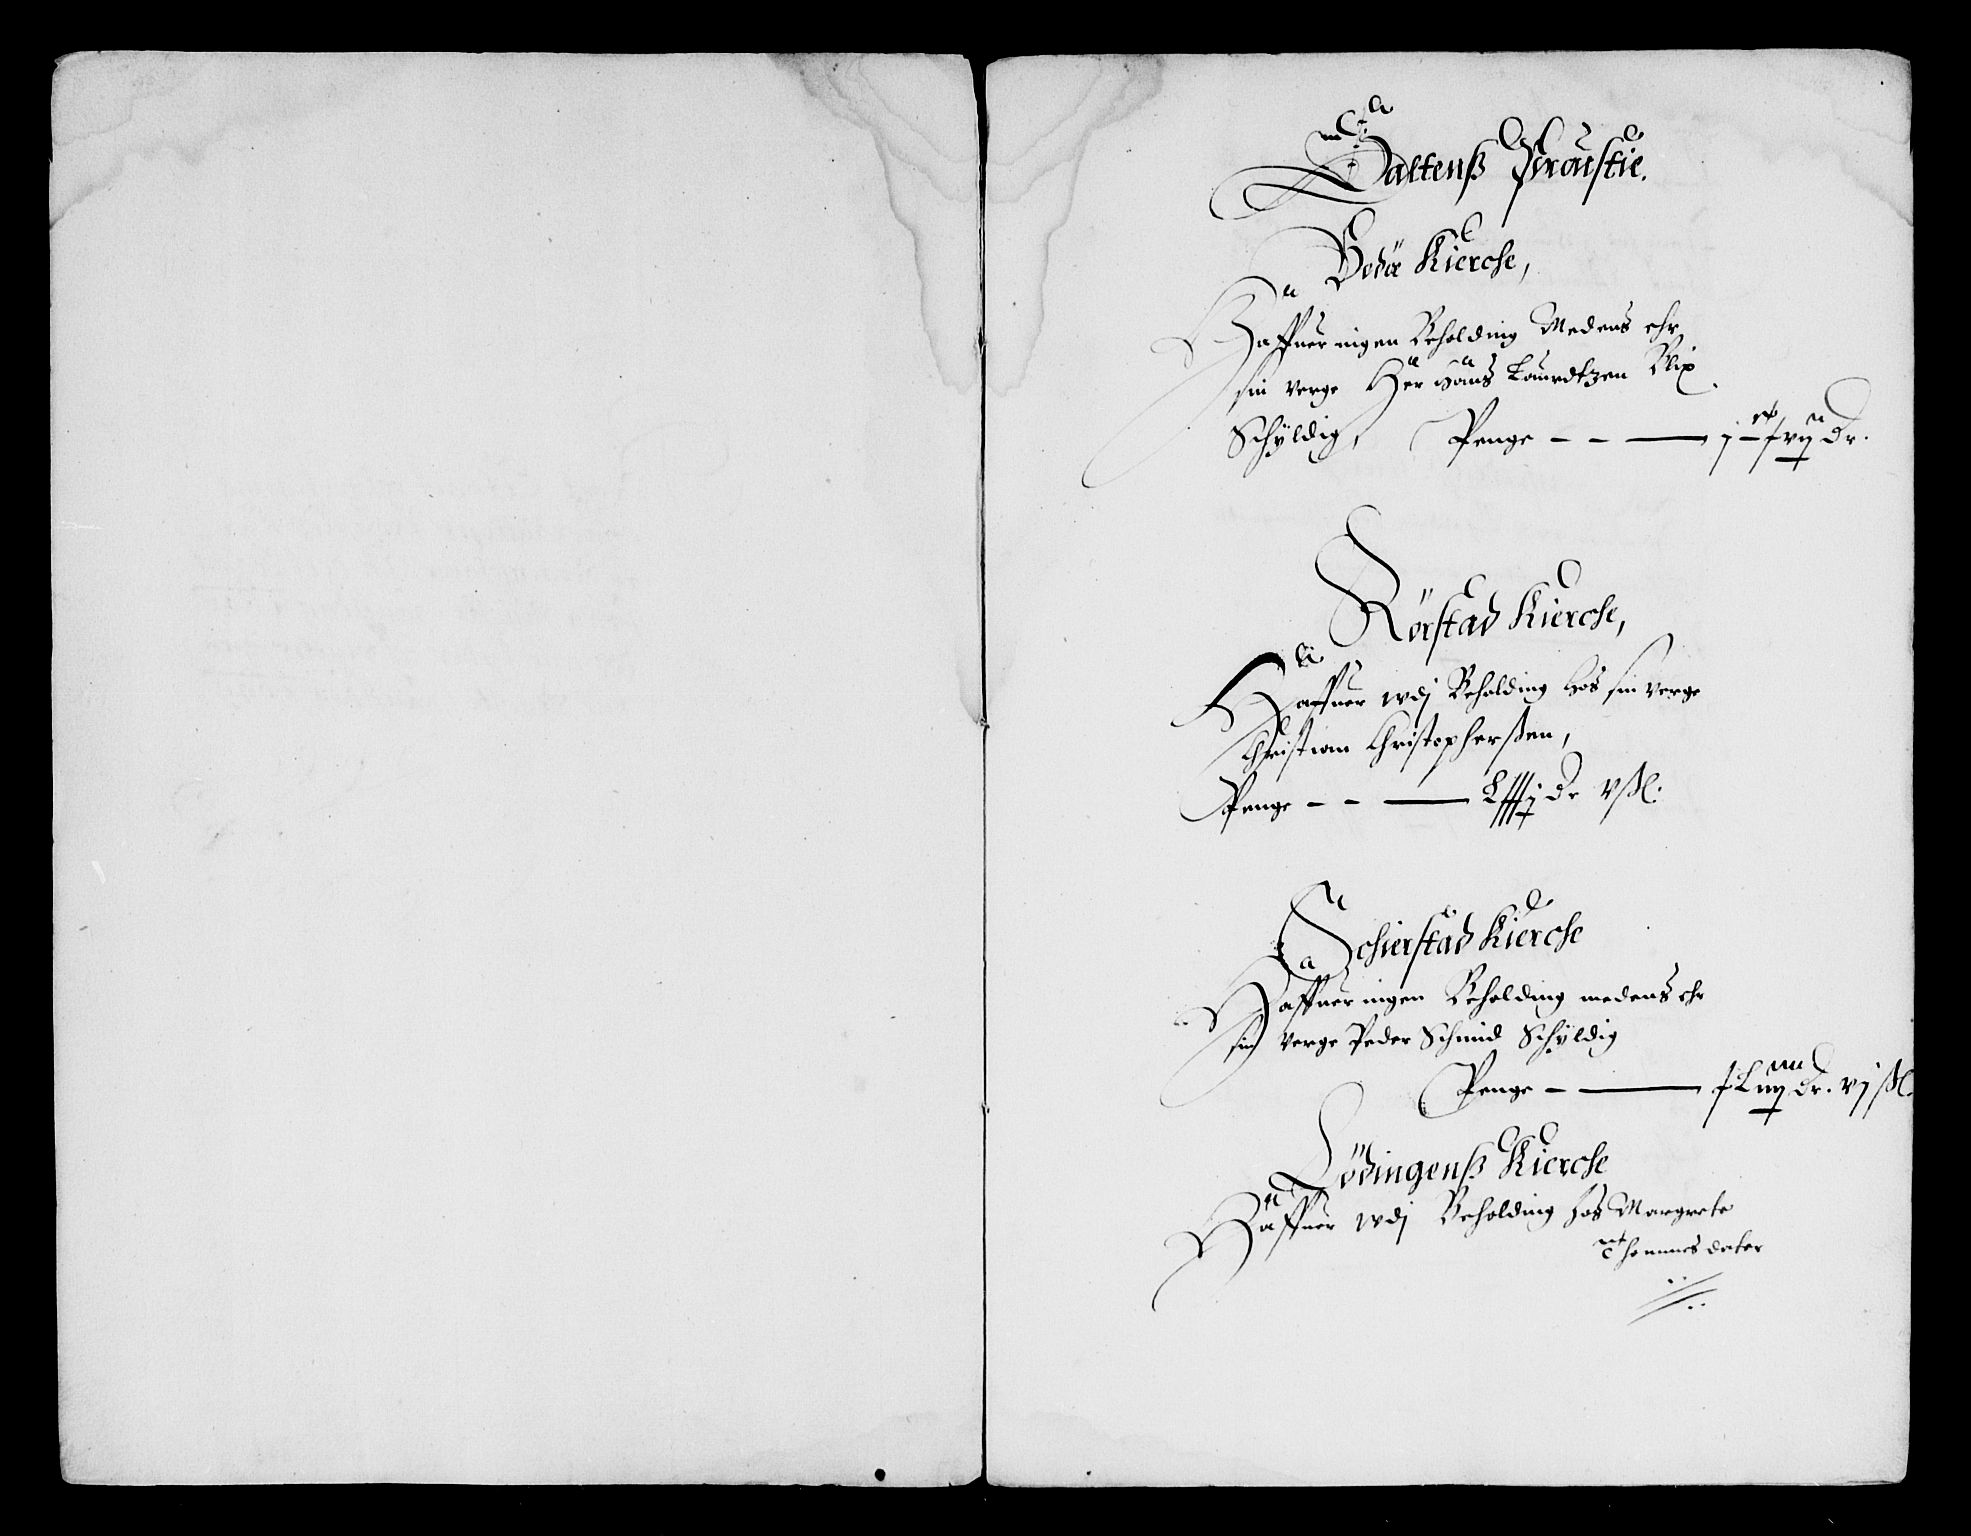 Saltenß Proustie.
Bodø Kierche,
Haffuer ingen Beholding Medens ehr
sin verge Her Hans Lauredtzen Blix
Schÿldig, Penge
Rørstad Kierche,
Haffuer wdj Beholding hos sin verge
Christian Christopherßen,
Penge
Schierstad Kierche
Haffuer ingen Beholding medens ehr
sin verge Peder Schmid Schÿldig
Penge
Lödingenß Kierche
Haffuer wdj Beholding hos Margrete